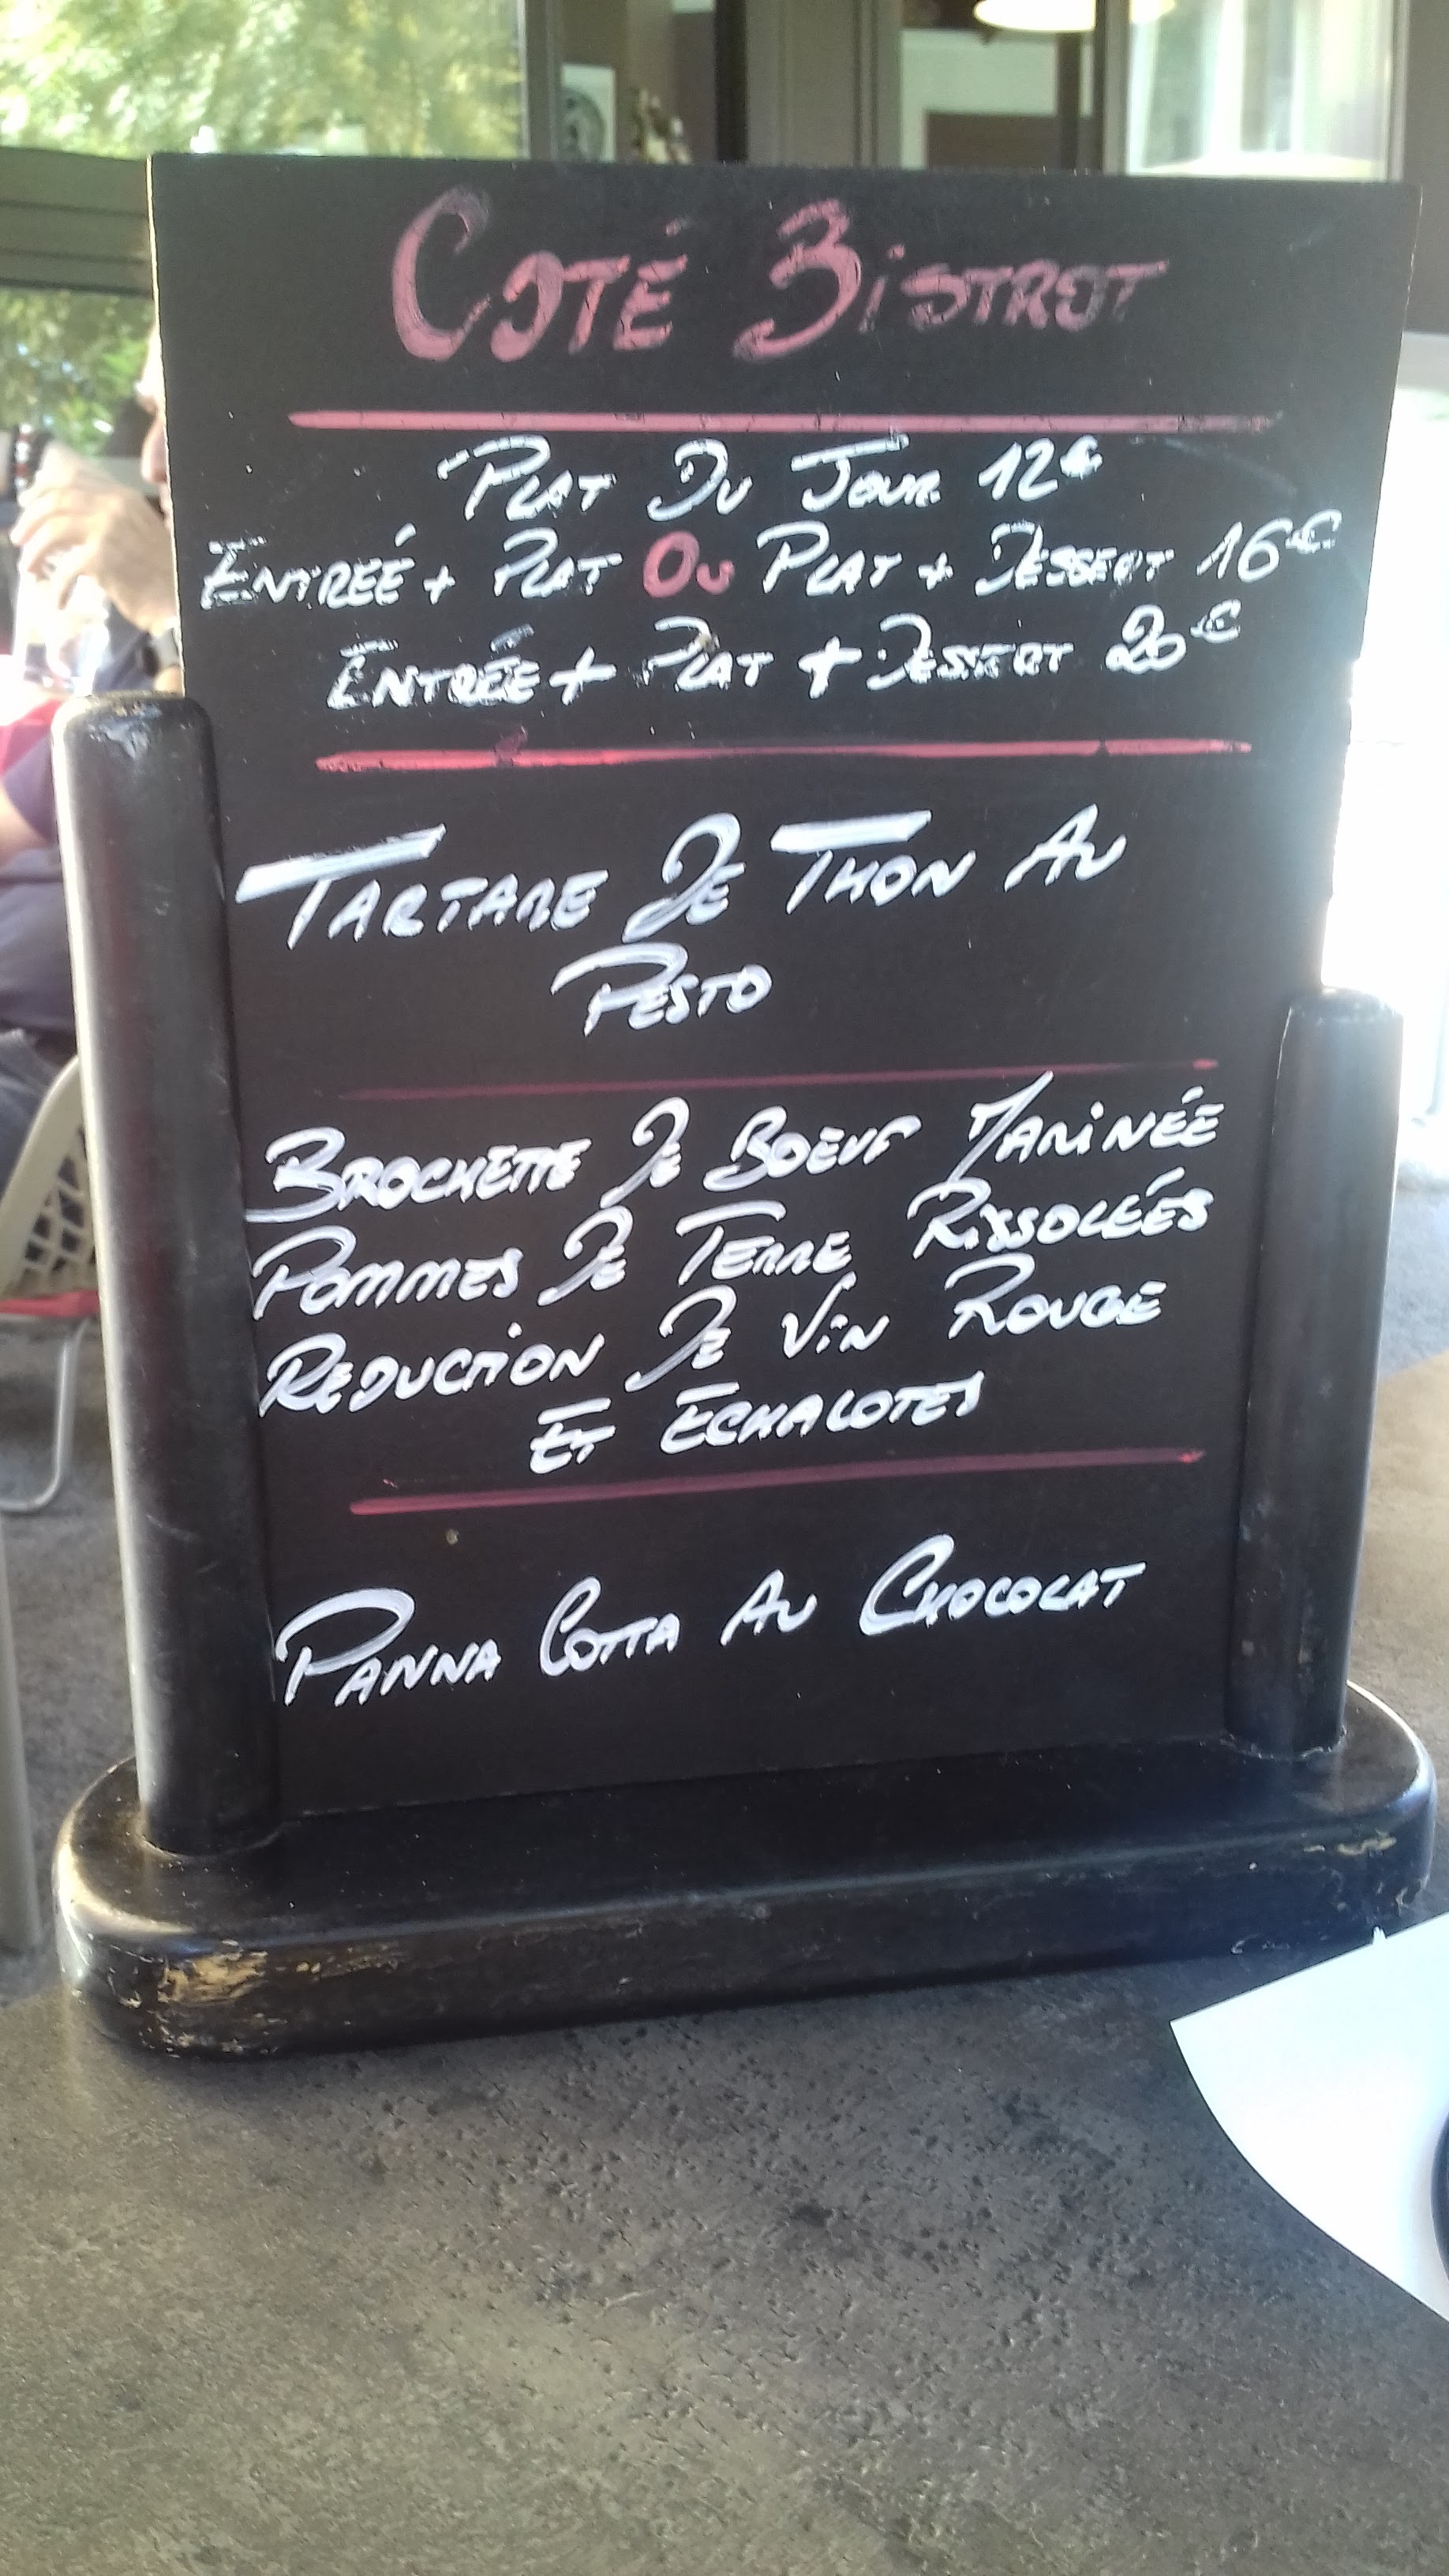 COTÉ BISTROT
PLAT DU JOUR 12€
ENTREÉ + PLAT OU PLAT + DESSERT 16€
ENTRÉE + PLAT + DESSERT 20€
TARTARE DE THON AU
PESTO
BROCHETTE DE BOEUF MARINÉE
POMMES DE TERRE RISSOLÉES
REDUCTION DE VIN ROUGE
ET ECHALOTES
PANNA COTTA AU CHOCOLAT